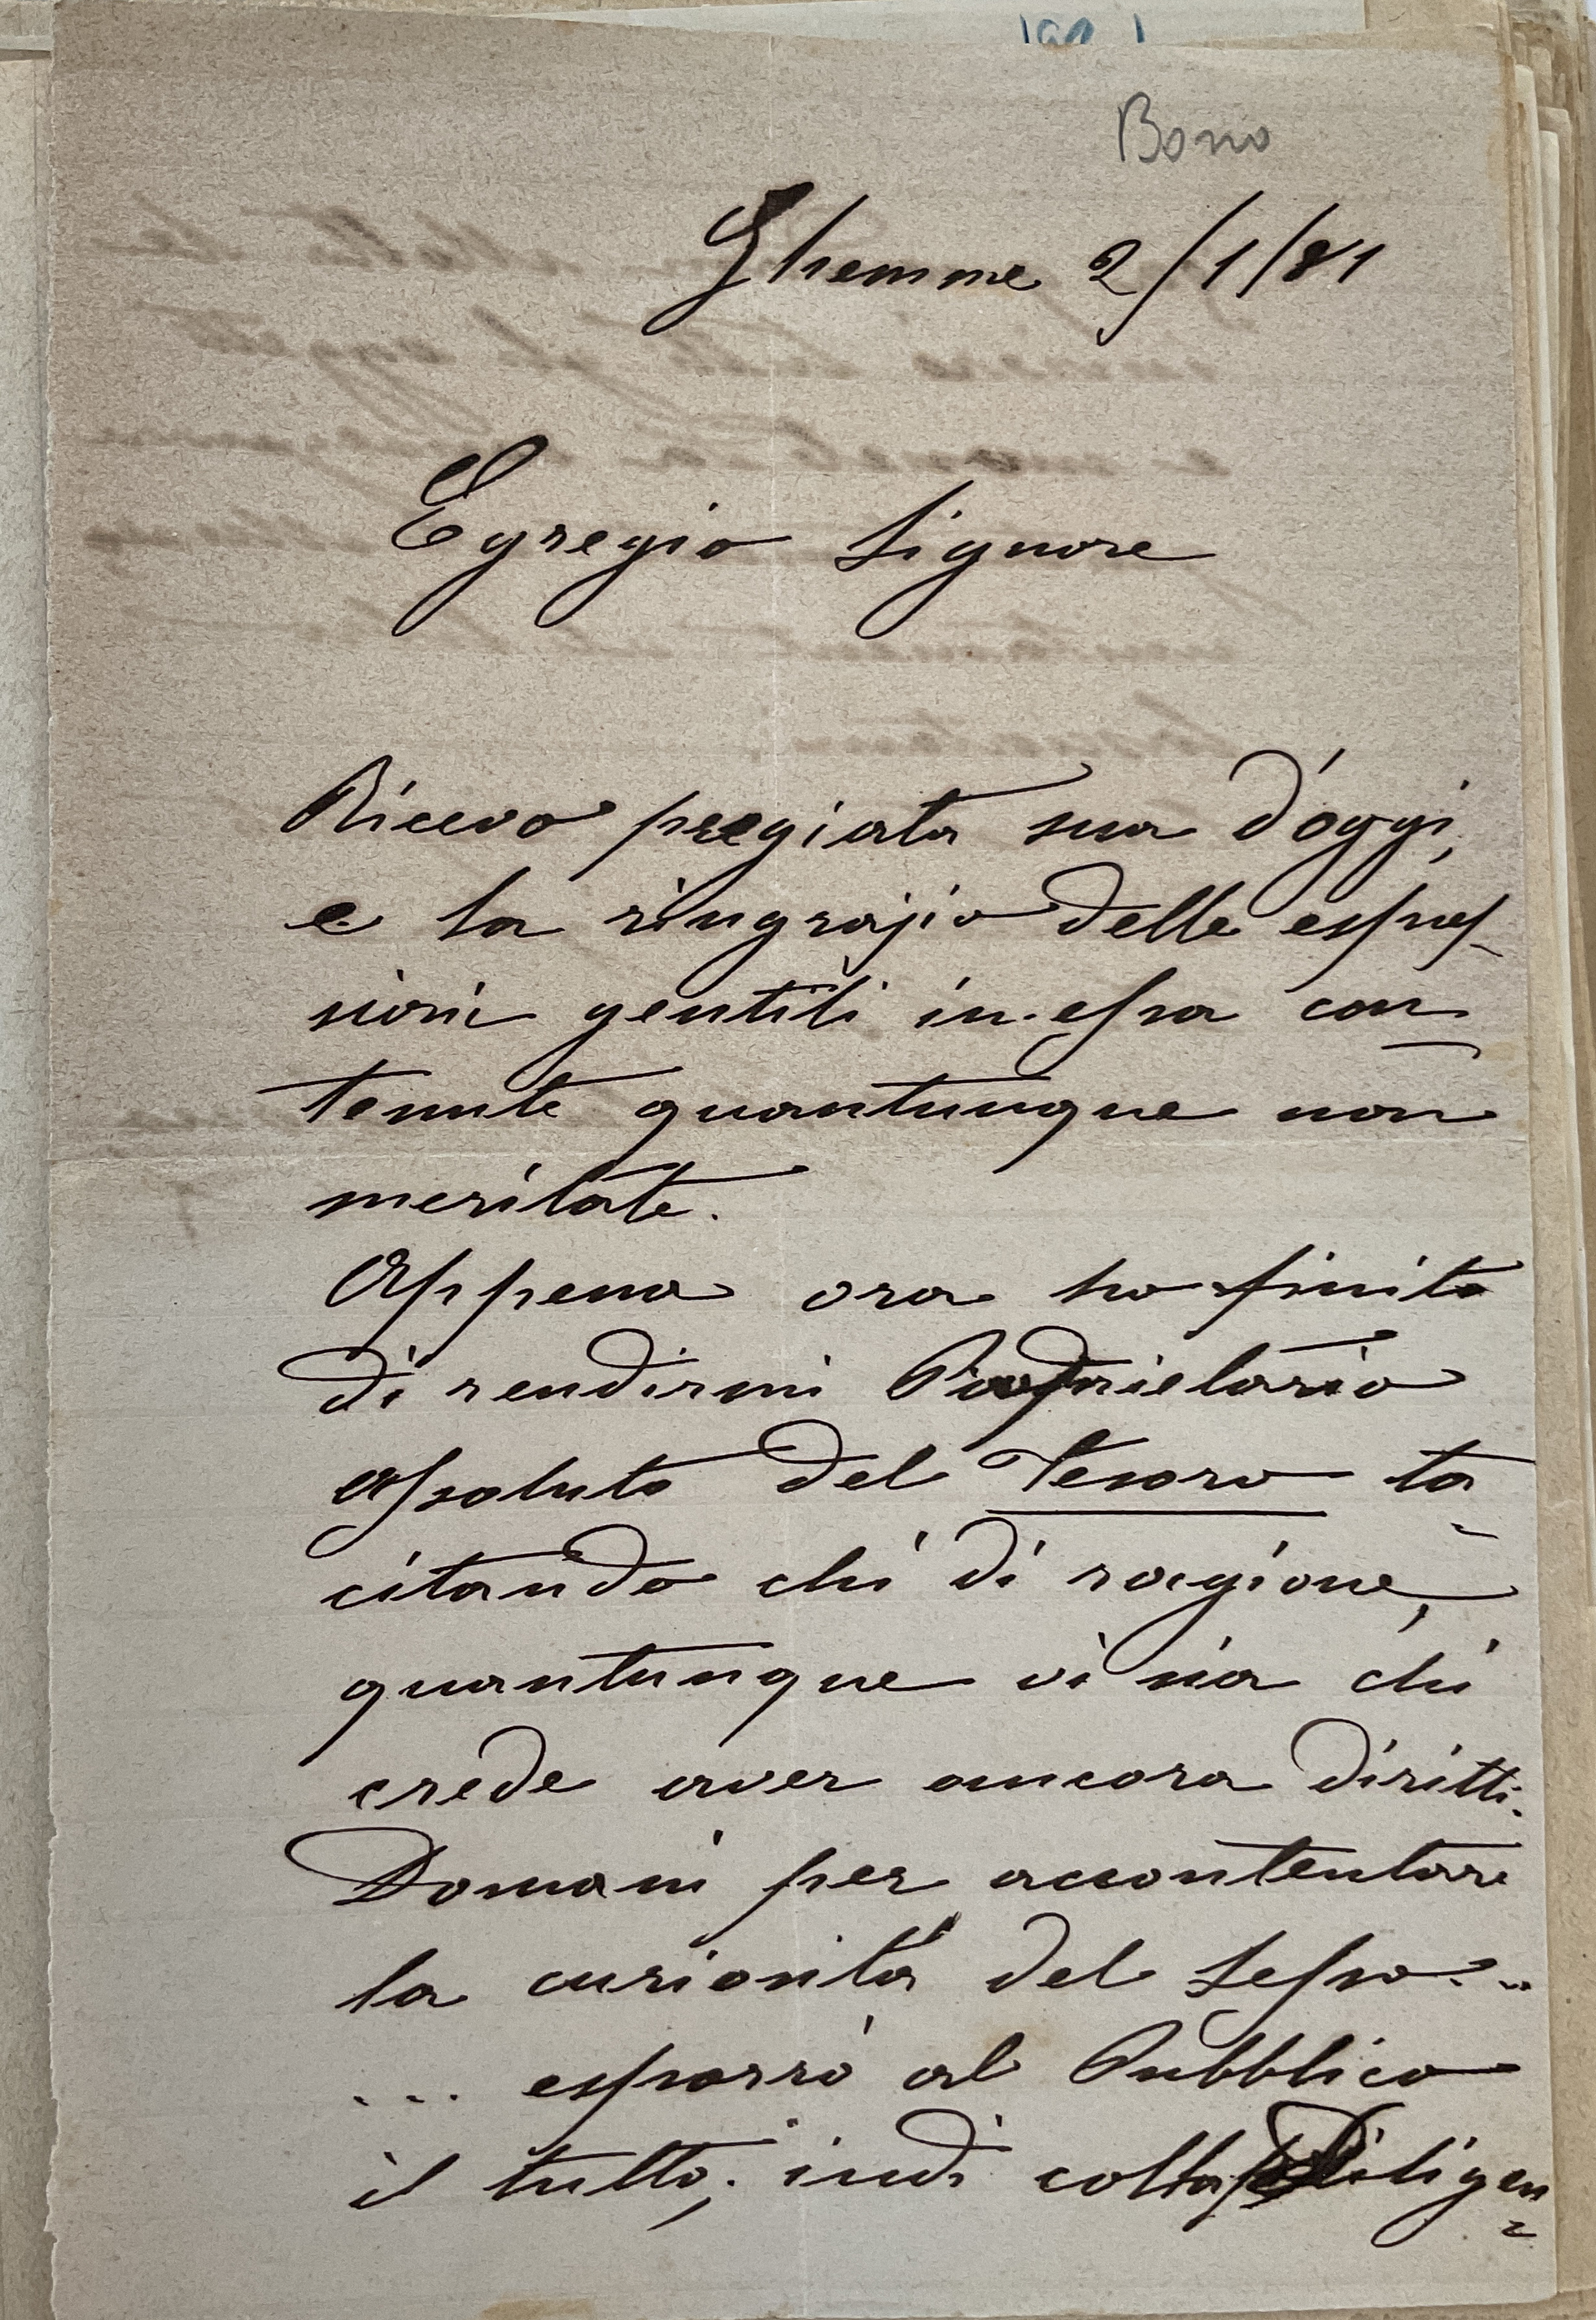 Bono
Ghemme 2/1/81
Egregio Signore
Ricevo pregiata sua d'oggi,
e la ringrazio delle espres-
sioni gentili in essa con-
tenute quantunque non
meritate.
Appena ora ho finito
di rendermi Proprietario
assoluto del Tesoro ta-
citando chi di ragione,
quantunque vi sia chi
crede aver ancora diritti.
Domani per accontentare
la curiosità del Sesso...
... esporrò al Pubblico
il tutto; indi colla Diligen=